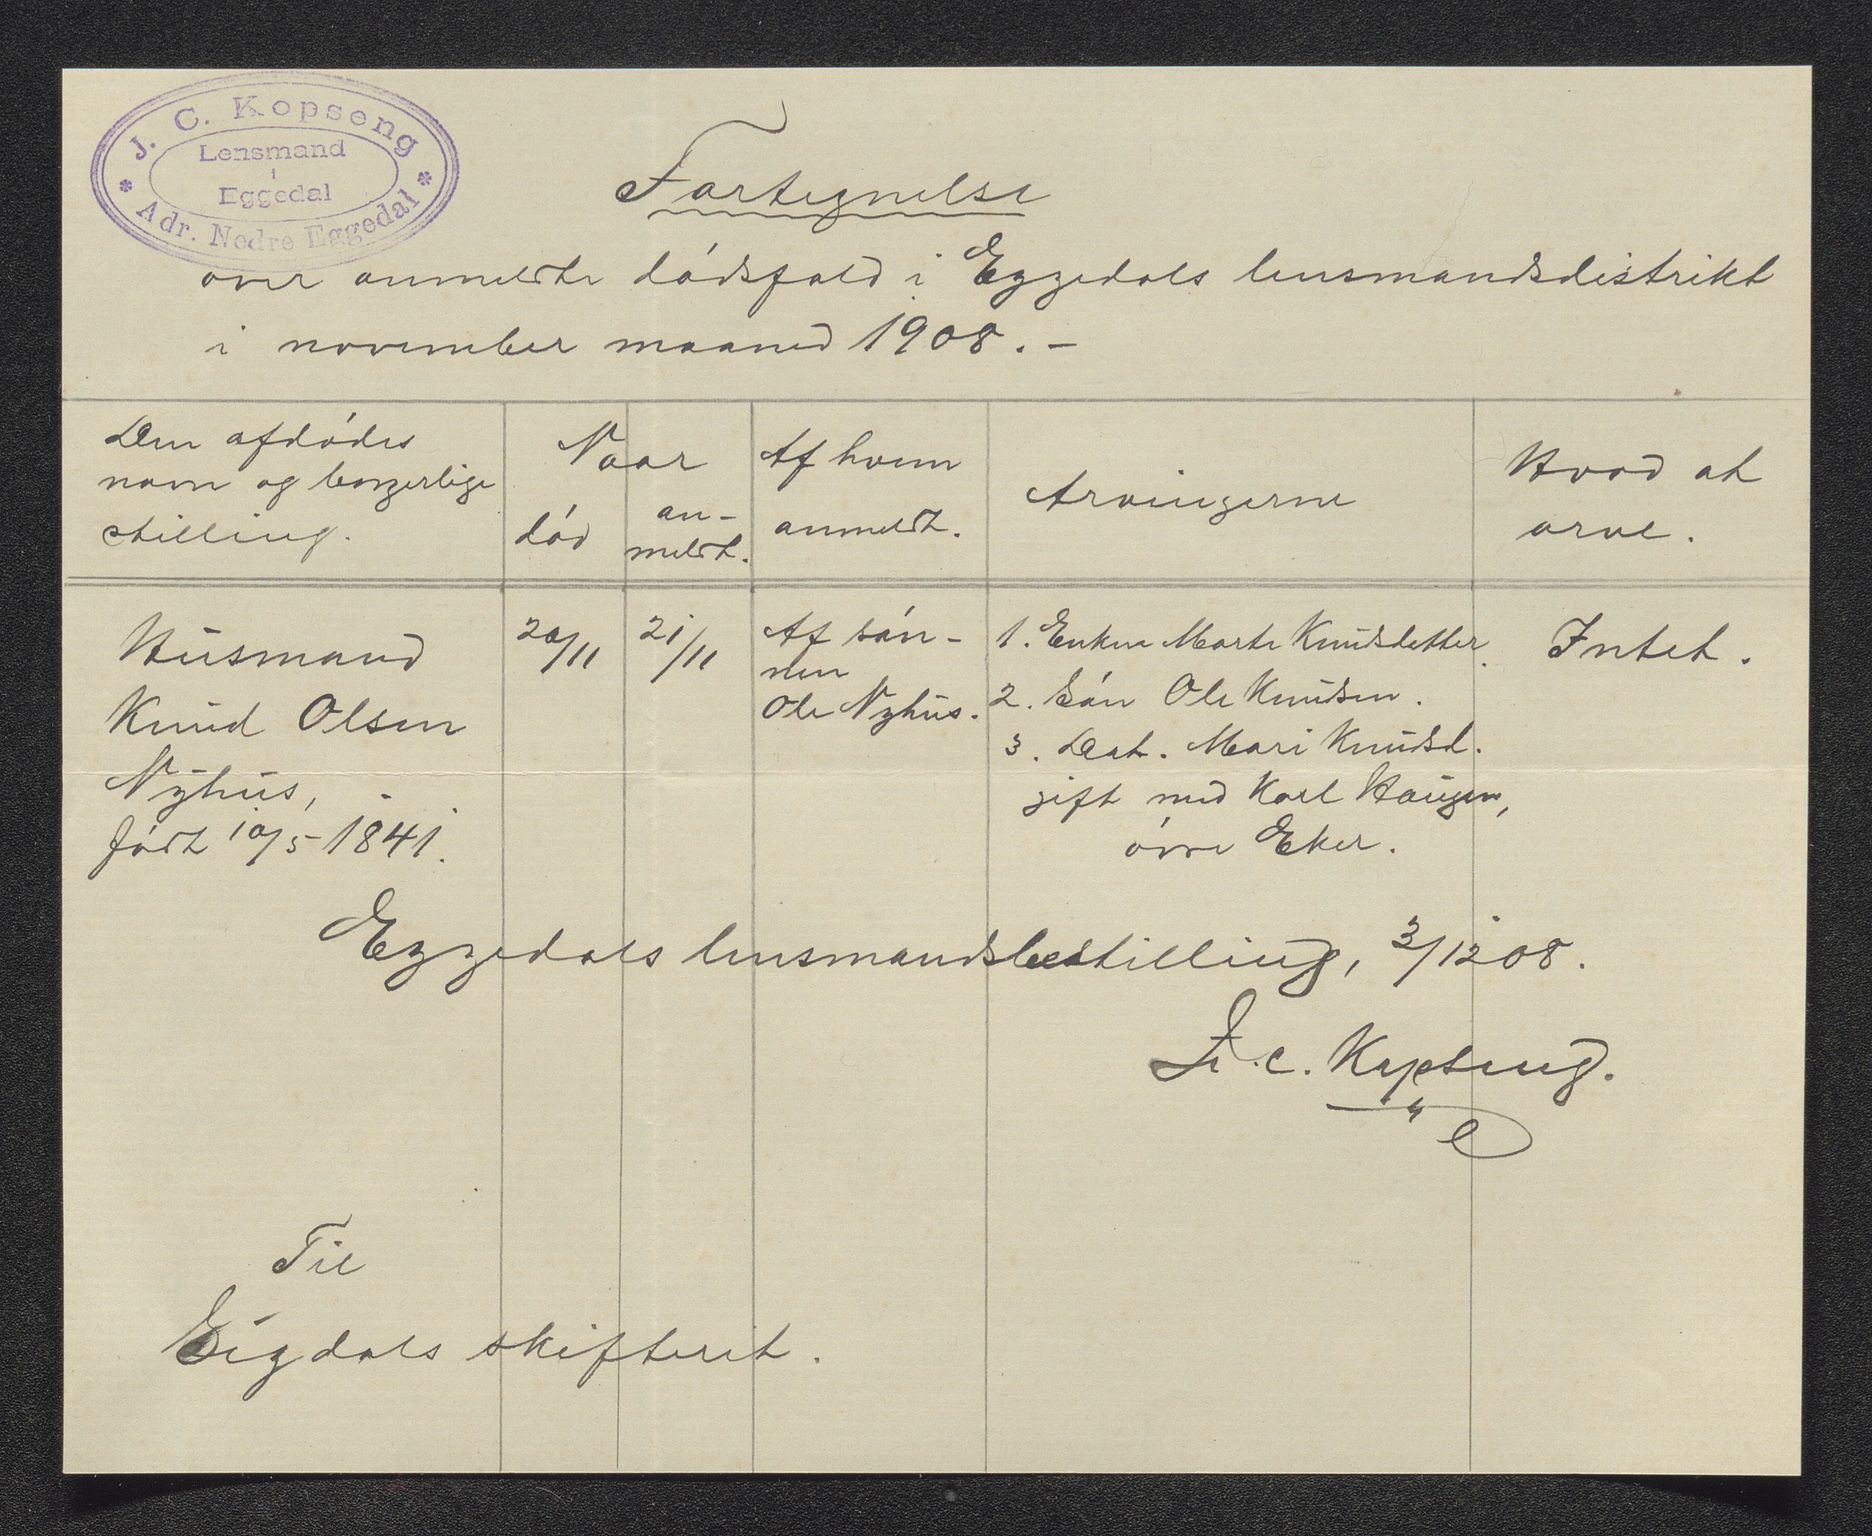 J. C. Kopseng
Lensmand
i
Eggedal
Adr. Nedre Eggedal
Fortegnelse
over anmeldte dódsfald i Eggedals lensmandsdistrikt
i november maaned 1908. –
Den afdódes
navn og borgerlige
stilling.
Naar
dód
an-
meldt.
Af hvem
anmeldt.
Arvingerne
Hvad at
arve.
Husmand
Knud Olsen
Nyhus,
fódt 10/5 1841.
20/11
21/11
Af són-
nen
Ole Nyhus.
1. Enken Marte Knudsdatter.
2. Són Ole Knudsen.
3. Dat. Mari Knudsd.
gift med Karl Haugen,
óvre Eker.
Intet.
Eggedals lensmandsbestilling, 3/12 08.
J. C. Kopseng.
Til
Sigdals skifteret.